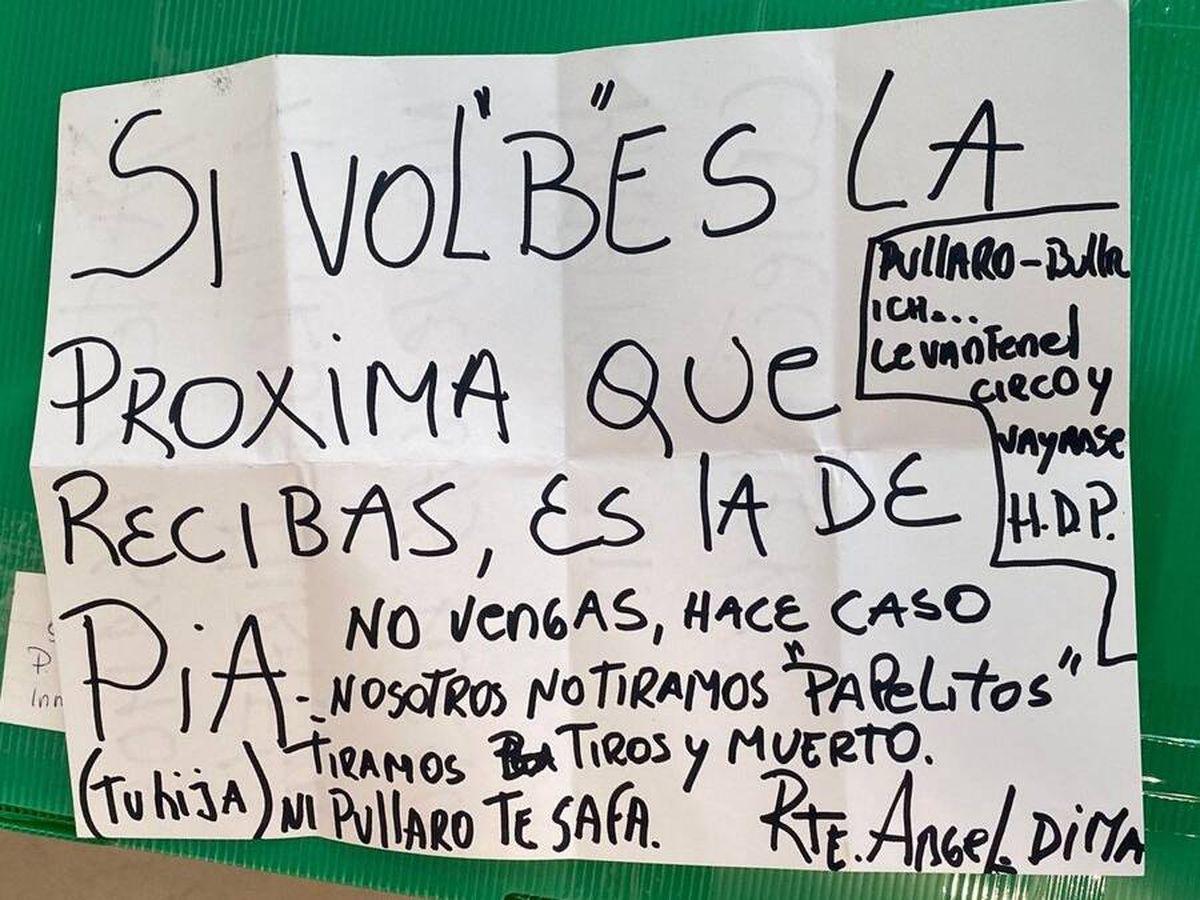 SI VOL"B"ES LA
PROXIMA QUE
RECIBAS, ES LA DE
PIA
(TU hijA)
NO VENGAS, HACE CASO
- NOSOTROS NO TIRAMOS "PAPELITOS"
- TIRAMOS TIROS Y MUERTO.
NI PULLARO TE SAFA.
RTE. ANGEL DIMA
PULLARO - Bullr
ICH...
LEVANTEN el
CIRCO Y
VAYANSE
H.D.P.